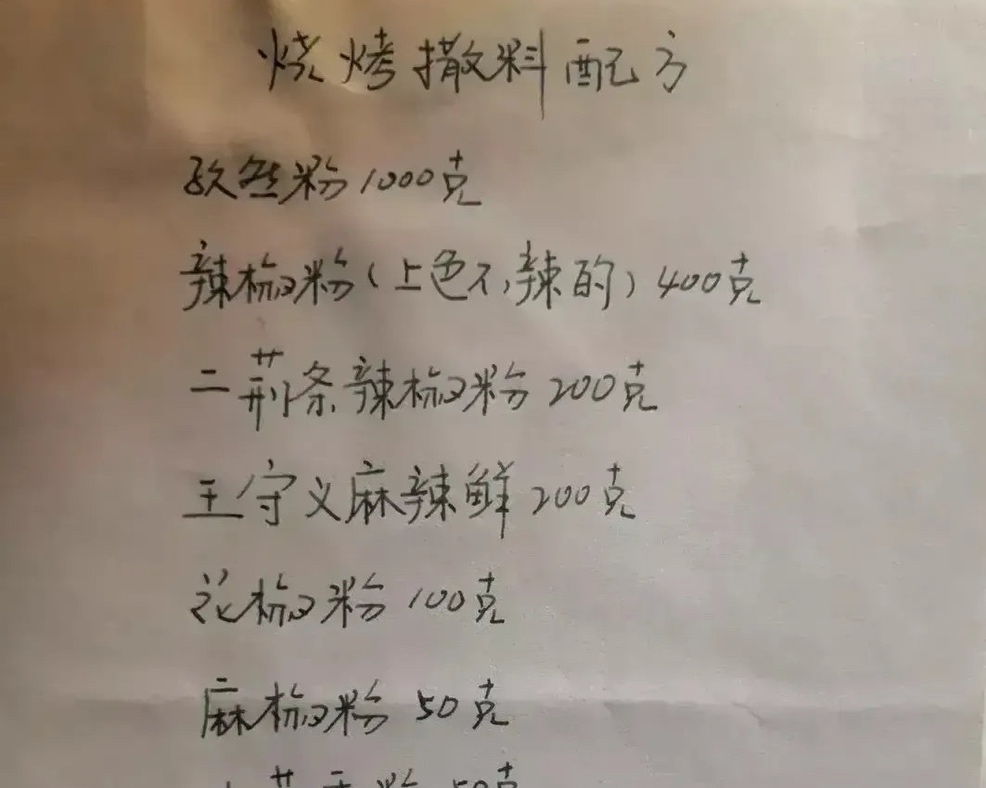 烧烤撒料配方
孜然粉1000克
辣椒粉(上色不辣的)400克
二荆条辣椒粉200克
王守义麻辣鲜200克
花椒粉100克
麻椒粉50克
粉50克